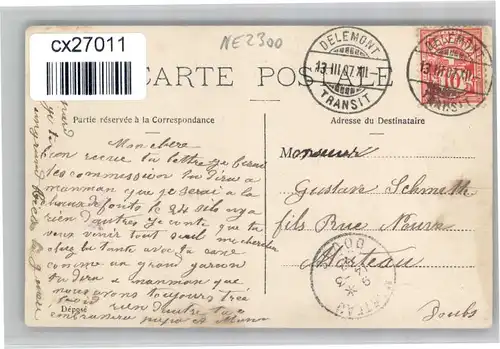 cx27011
NE2300
CARTE POSTALE
DELEMONT
13.III.07.XII
TRANSIT
DELEMONT
13.III.07.XII
TRANSIT
Partie réservée à la Correspondance
Adresse du Destinataire
Mon cher
recue ta lettre je ferai
les commission tu dira a
manman que je serai a la
chaux de fonts le 24 sil nya
rien dautres je conte que tu
veux venir tout seul me chercher
chez la tante avec ta cane
comme un grand garcon
tu dira a manman que
nous avons toujours tres
froid rien dautre
papa et
Déposé
Monsieur
Gustave
fils Rue Neuve
Morteau
Doubs